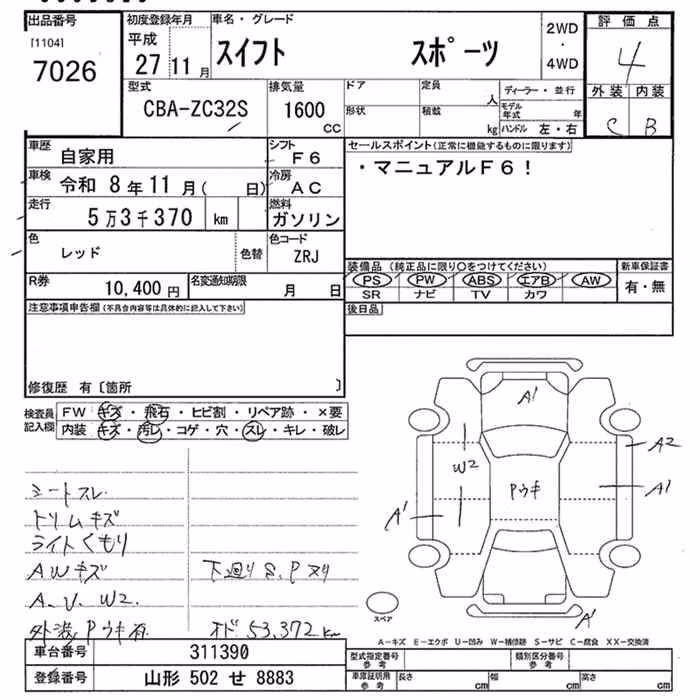 出品番号
[1104]
7026
初度登録年月
平成
27 11 月
車名・グレード
スイフト スポーツ
2WD
・
4WD
評価点
4
外装 内装
C B
型式
CBA-ZC32S
排気量
1600
CC
ドア 定員
人
形状 積載
kg
ディーラー・並行
モデル年式 年
ハンドル 左・右
車歴
自家用
シフト
F6
車検
令和 8年 11月( 日)
冷房
AC
走行
5万3千370 km
燃料
ガソリン
色
レッド
色替
色コード
ZRJ
R券
10,400 円
名変通知期限
月 日
セールスポイント(正常に機能するものに限ります)
・マニュアルF6!
装備品 (純正品に限り〇をつけてください)
PS PW ABS エアB AW
SR ナビ TV カワ
新車保証書
有・無
後日品
注意事項申告欄(不具合内容等は具体的に記入して下さい)
修復歴 有〔箇所 〕
検査員記入欄
FW キズ・飛石・ヒビ割・リペア跡・×要
内装 キズ・汚レ・コゲ・穴・スレ・キレ・破レ
シートスレ
トリムキズ
ライトくもり
AWキズ
A、U、W2.
外装Pウキ有
下廻りS、Pヌリ
オド53,372km
A1
W2
Pウキ
A2
A1
A1
A1
スペア
A-キズ E-エクボ U-凹み W-補修跡 S-サビ C-腐食 XX-交換済
車台番号 311390
登録番号 山形 502 せ 8883
型式指定番号
参考
類別区分番号
参考
車庫証明用
参考
長さ cm 幅 cm 高さ cm